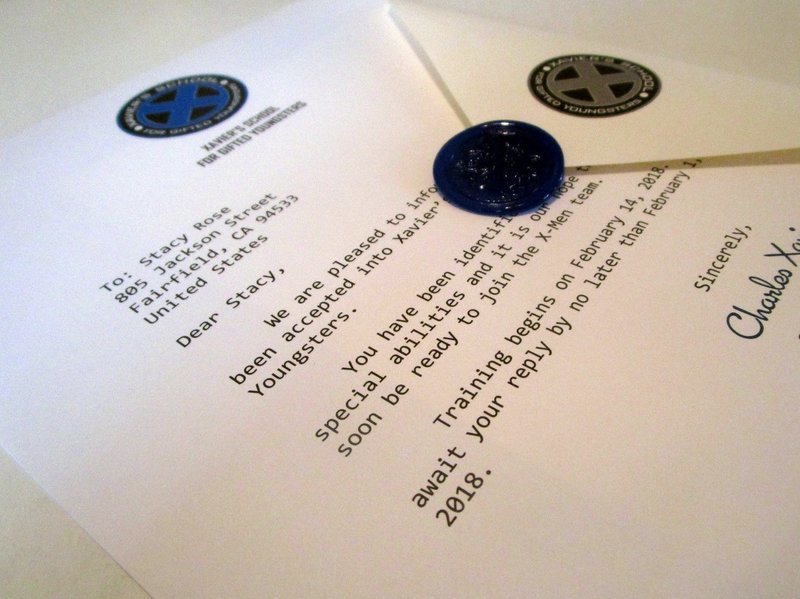 XAVIER'S SCHOOL
FOR GIFTED YOUNGSTERS
XAVIER'S SCHOOL
FOR GIFTED YOUNGSTERS
XAVIER'S SCHOOL
FOR GIFTED YOUNGSTERS
To: Stacy Rose
805 Jackson Street
Fairfield, CA 94533
United States
Dear Stacy,
We are pleased to info
been accepted into Xavier'
Youngsters.
You have been identifi
special abilities and it is our hope t
soon be ready to join the X-Men team.
Training begins on February 14, 2018.
await your reply by no later than February 1,
2018.
Sincerely,
Charles Xavi